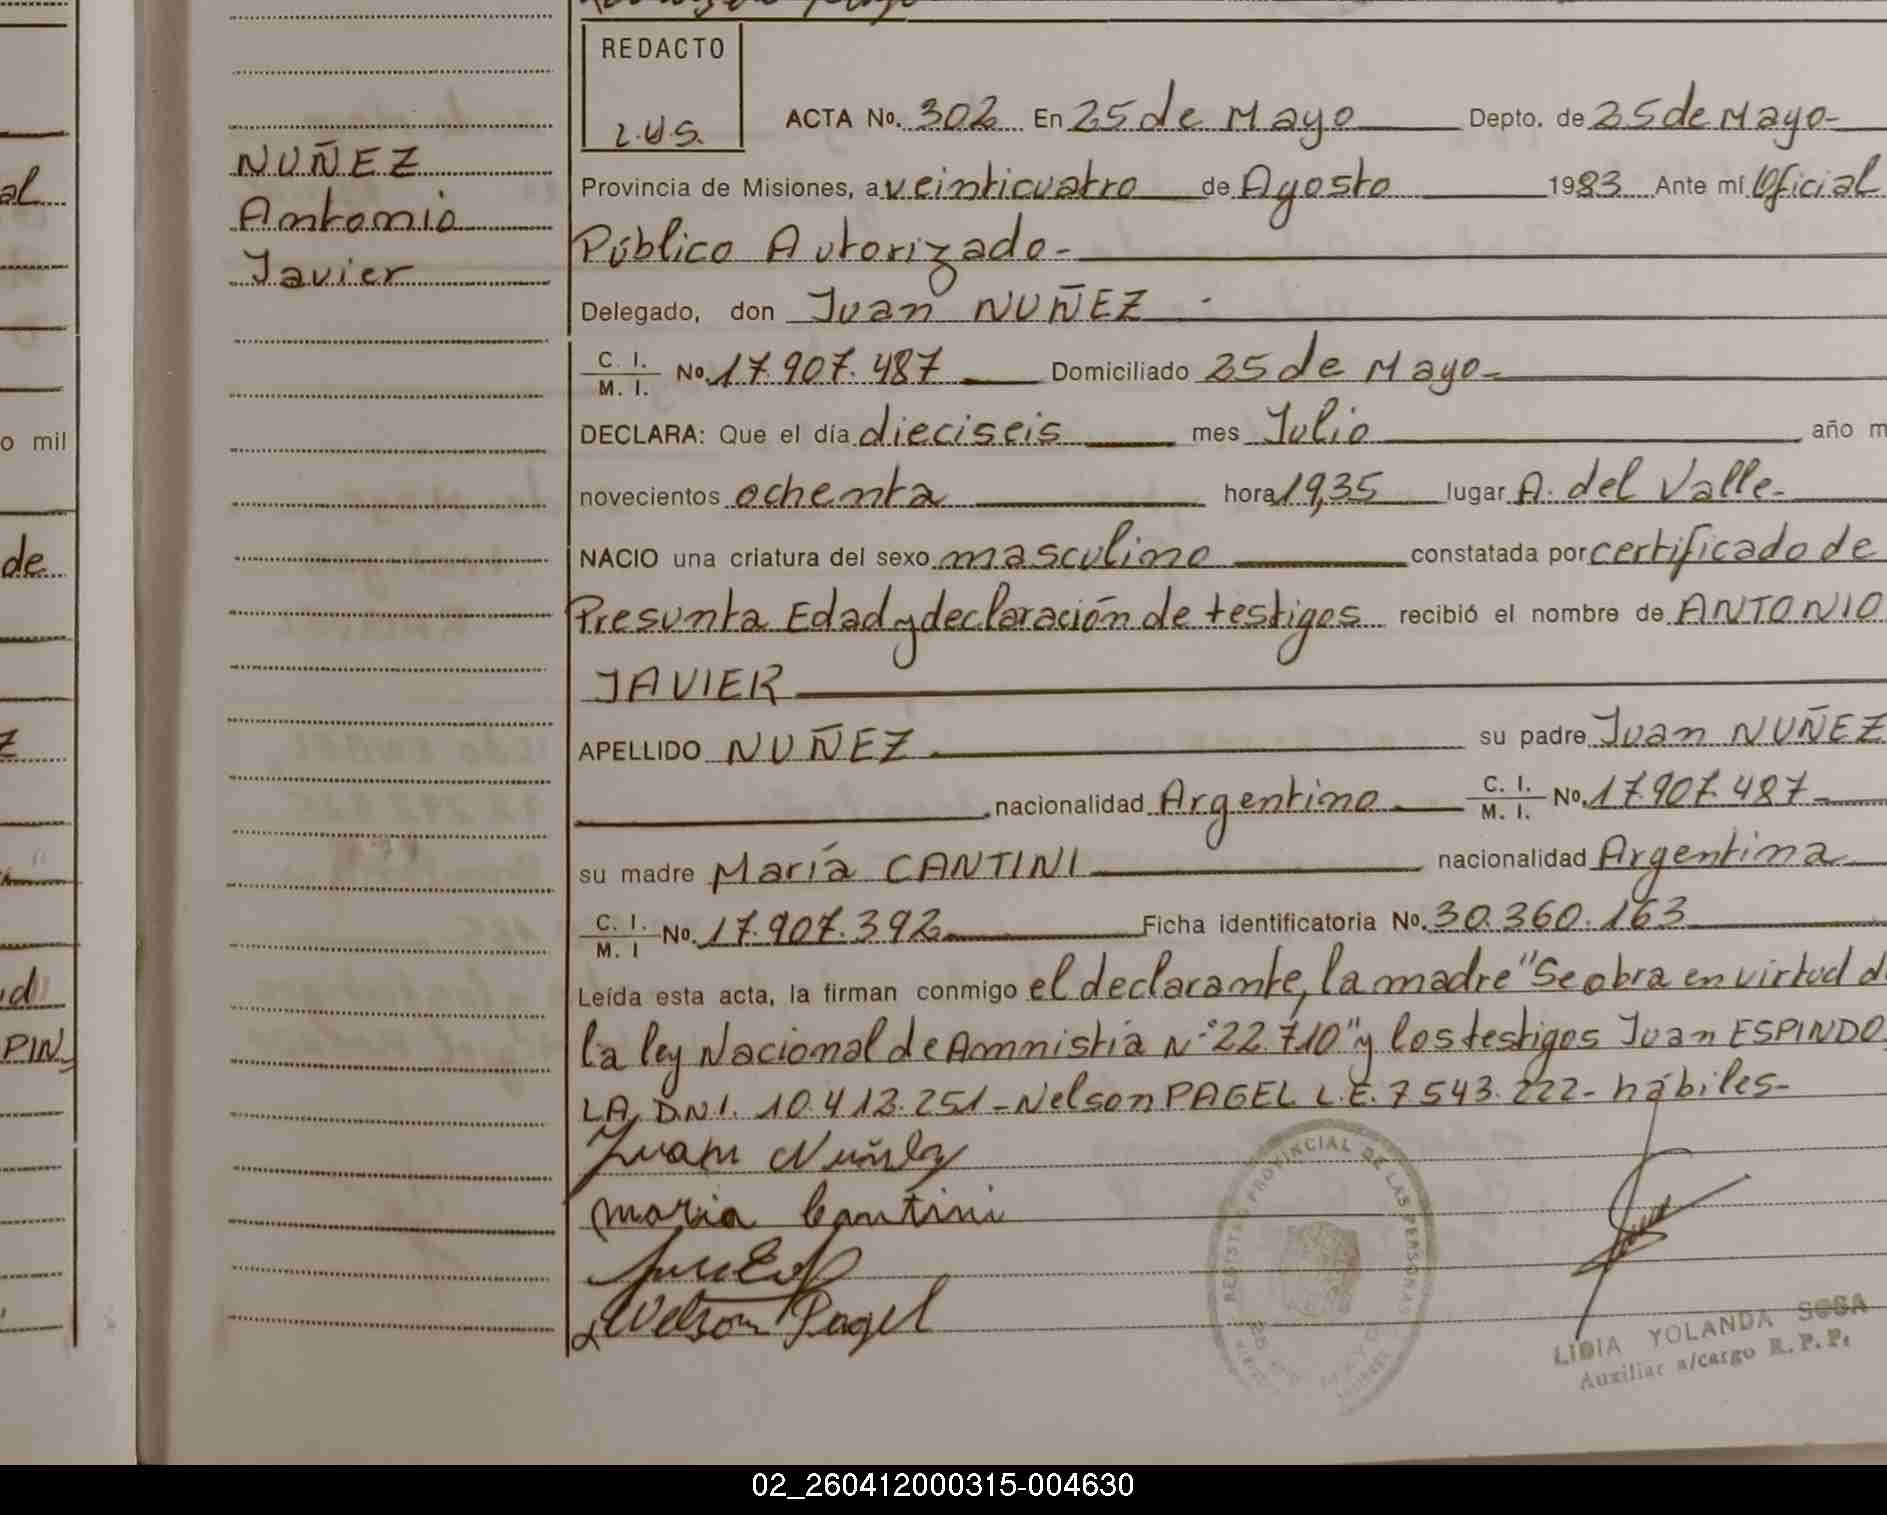 REDACTO
L.Y.S.
ACTA No. 302 En 25 de Mayo Depto. de 25 de Mayo-
NUÑEZ
Antonio
Javier
Provincia de Misiones, a veinticuatro de Agosto 1983 Ante mí Oficial
Público Autorizado-
Delegado, don Juan NUÑEZ-
C. I. / M. I. No. 17.907.487 Domiciliado 25 de Mayo-
DECLARA: Que el día dieciseis mes Julio año m
novecientos ochenta hora 19,35 lugar A. del Valle-
NACIO una criatura del sexo masculino constatada por certificado de
Presunta Edad y declaración de testigos recibió el nombre de ANTONIO
JAVIER
APELLIDO NUÑEZ su padre Juan NUÑEZ
nacionalidad Argentino C. I. / M. I. No. 17.907.487
su madre María CANTINI nacionalidad Argentina
C. I. / M. I No. 17.907.392 Ficha identificatoria No. 30.360.163
Leída esta acta, la firman conmigo el declarante, la madre "Se obra en virtud d
la ley Nacional de Amnistía N° 22.710" y los testigos Juan ESPINDO
LA, D.N.I. 10.413.251-Nelson PAGEL L.E. 7543.222- hábiles-
Juan Nuñez
maria Cantini
Nelson Pagel
REGISTRO PROVINCIAL DE LAS PERSONAS
LIDIA YOLANDA SOSA
Auxiliar a/cargo R.P.P.
al
o mil
de
z
PIN
02_260412000315-004630